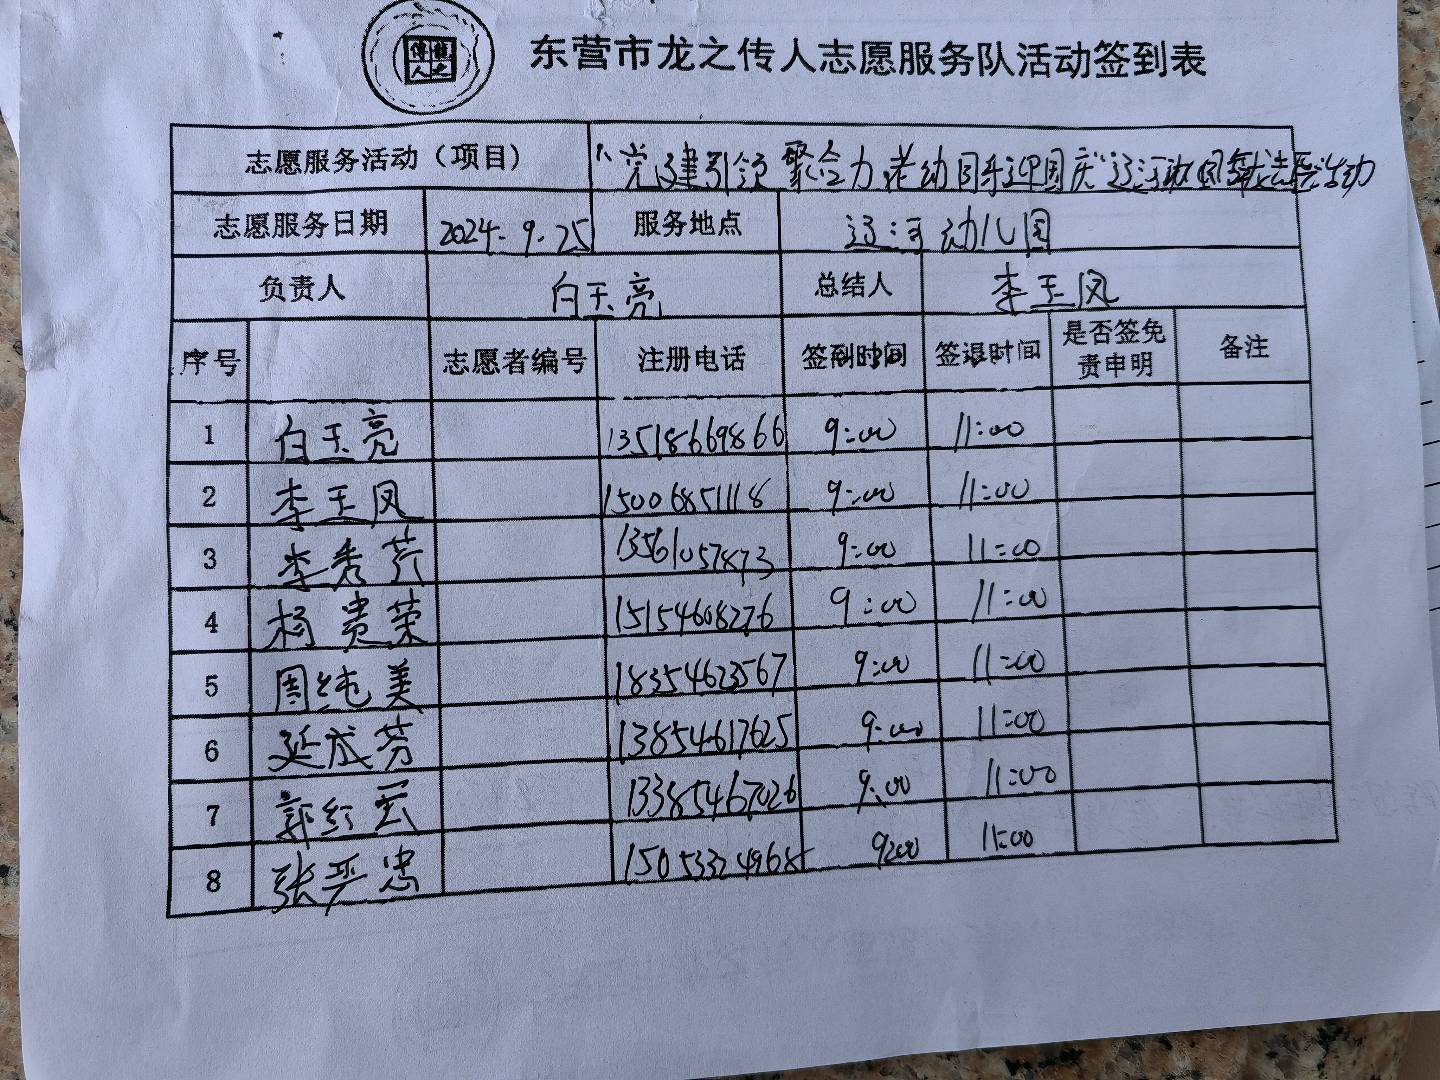 龍之傳人
东营市龙之传人志愿服务队活动签到表
志愿服务活动（项目） “党建引领 聚合力 老幼同乐迎国庆”辽河幼
志愿服务日期 2024.9.25 服务地点 辽河幼儿园
负责人 白玉亮 总结人 李玉凤
序号 志愿者编号 注册电话 签到时间 签退时间 是否签免责申明 备注
1 白玉亮 13518669866 9:00 11:00
2 李玉凤 15006851118 9:00 11:00
3 李秀芹 13561057873 9:00 11:00
4 杨贵荣 15154608276 9:00 11:00
5 周纯美 18354623567 9:00 11:00
6 延成芬 13854617625 9:00 11:00
7 郭红云 13385467026 9:00 11:00
8 张严忠 15053324968 9:00 11:00